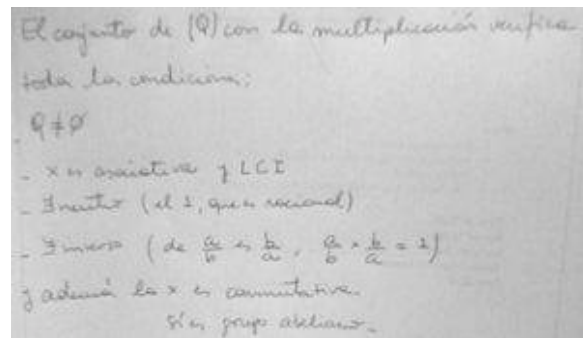 El conjunto de (Q) con la multiplicación verifica
todas las condiciones:
Q ≠ ∅
- × es asociativa y LCI
- ∃ neutro (el 1, que es racional)
- ∃ inverso (de a/b es b/a, a/b × b/a = 1)
y además la × es conmutativa.
Sí es grupo abeliano.